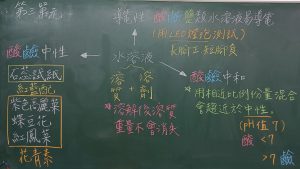 第三單元
導電性 酸鹼鹽類水溶液易導電
(用LED燈泡測試)
長腳正短腳負
酸鹼中性
水溶液
石蕊試紙
紅藍配
紫色高麗菜
蝶豆花
紅鳳菜
花青素
溶質+溶劑
*溶解後溶質
重量不會消失
酸鹼中和
*用相近比例份量混合
會趨近於中性。
(pH值7)
酸 <7
>7 鹼